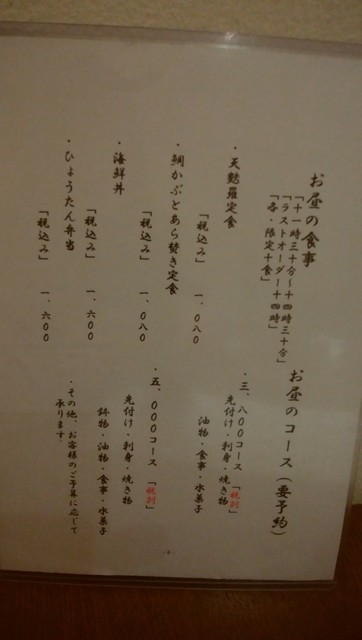 お昼の食事
「十一時三十分～十四時三十分」
「ラストオーダー十四時」
「各・限定十食」
・天麩羅定食
「税込み」 一、〇八〇
・鯛かぶとあら焚き定食
「税込み」 一、〇八〇
・海鮮丼
「税込み」 一、六〇〇
・ひょうたん弁当
「税込み」 一、六〇〇
お昼のコース(要予約)
・三、八〇〇コース「税別」
先付け・刺身・焼き物
油物・食事・水菓子
・五、〇〇〇コース「税別」
先付け・刺身・焼き物
鉢物・油物・食事・水菓子
・その他、お客様のご予算に応じて
承ります